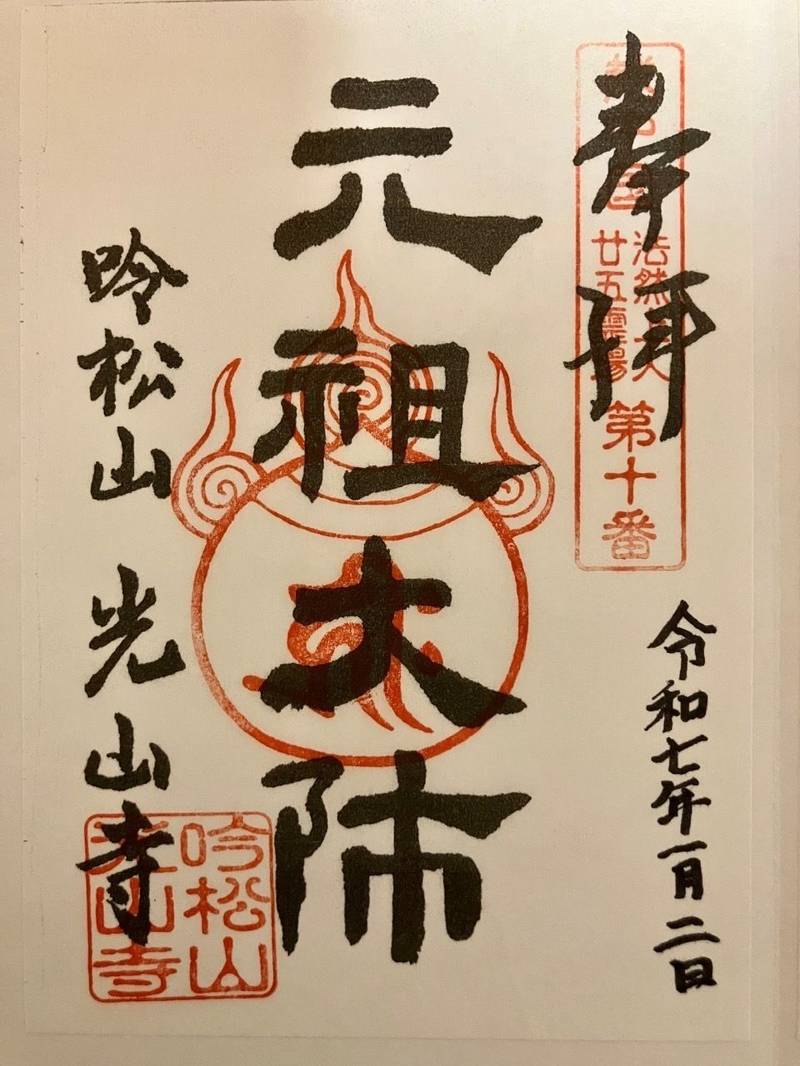 奉拝
法然上人
廿五霊場
第十番
令和七年一月二日
元祖大师
吟松山 光山寺
吟松山
光山寺